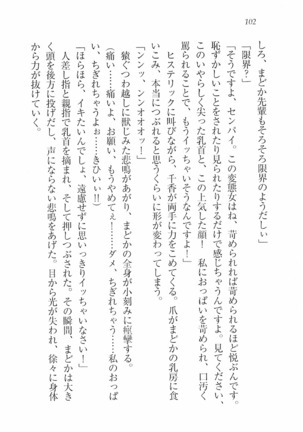 102
しろ、まどか先輩もそろそろ限界のようだしぃ」
「限界？」
「そうですよ、センパイ。この変態女はね、苛められれば苛められるほど悦ぶんです。
恥ずかしいことをされたり見られたりするだけで感じちゃうんですよ。見てください、
このいやらしく尖った乳首と、この上気した顔！　私におっぱいを苛められ、口汚く
罵られることで、もうイッちゃいそうなんですよ！」
ヒステリックに叫びながら、千香が両手に力をこめてくる。爪がまどかの乳房に食
いこみ、本当につぶれると思うくらいに形が変わってしまう。
「ンンッ、ンンオオオッ！」
猿ぐつわ越しに獣じみた悲鳴があがり、まどかの全身が小刻みに痙攣する。
（痛い……痛いよ、お願い、もうやめてぇ！……ダメ、ちぎれちゃう……私のおっぱ
い、ちぎれちゃうよぉ……きひぃぃ!!）
「ほらほら、イキたいんでしょ、遠慮せずに思いっきりイッちゃいなさい！」
人差し指と親指で乳首を摘まれ、そして押しつぶされた。その瞬間、まどかは大き
く頭を後方に投げだし、声にならない悲鳴をあげた。目から光が失われ、徐々に身体
から力が抜けていく。